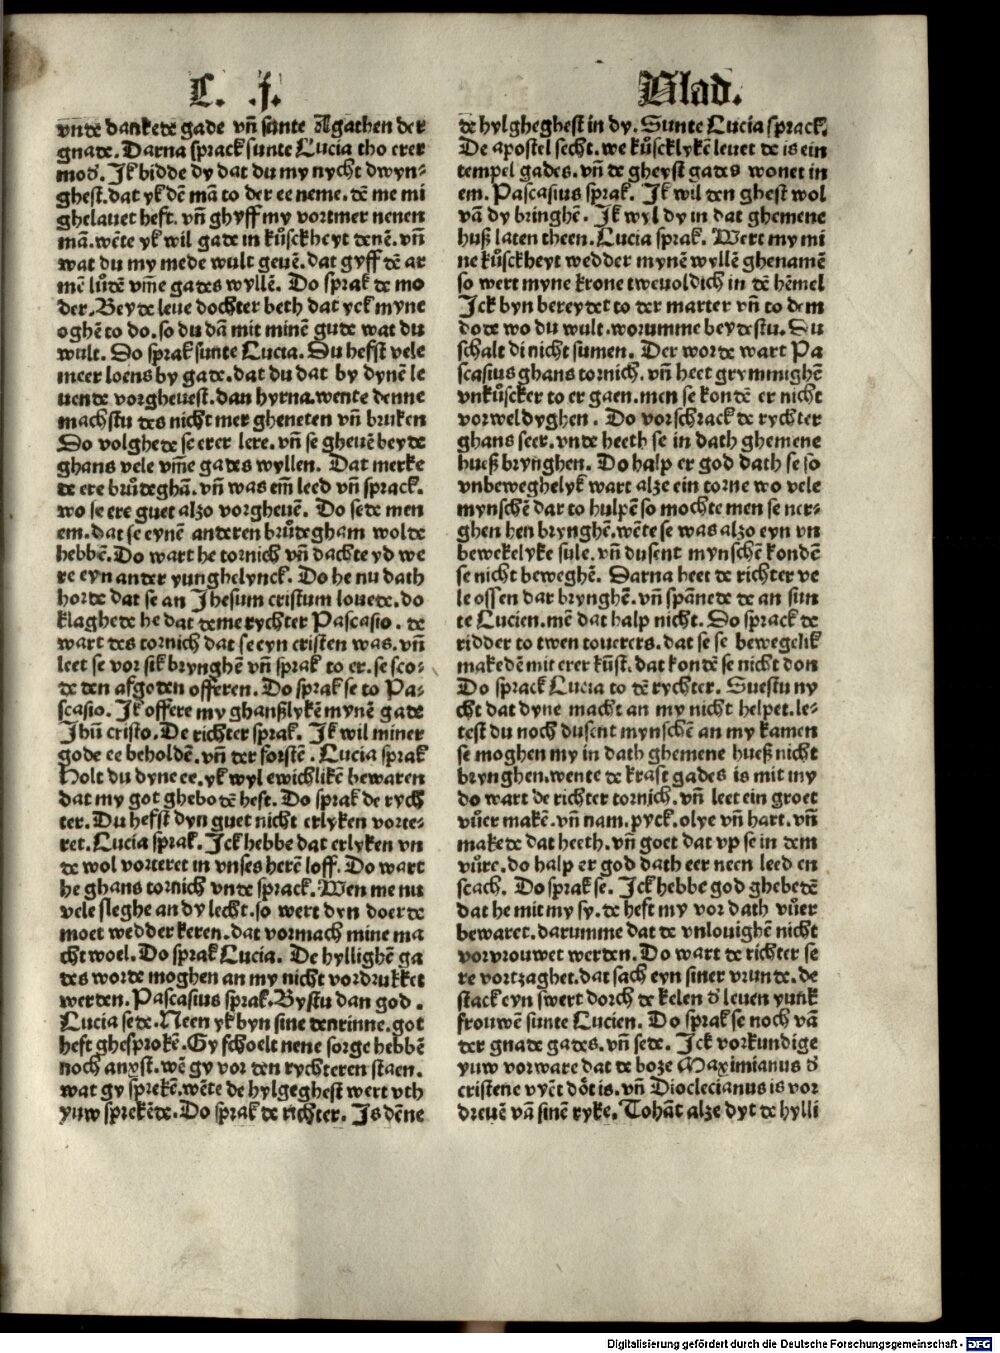 C. .j. Blad.
vnde dankede gade vn̄ sunte Agathen der
gnade. Darna sprack sunte Lucia tho erer
mod̕. Jk bidde dy dat du my nycht dwyn⸗
ghest. dat yk dē mā to der ee neme. dē me mi
ghelauet heft. vn̄ ghyff my vortmer nenen
mā. wēte yk wil gade in kuͤsckheyt denē. vn̄
wat du my mede wult geuē. dat gyff dē ar
mē luͤdē vm̄e gades wyllē. Do sprak de mo
der. Beyde leue dochter beth dat yck myne
oghē to do. so du dā mit minē gude wat du
wult. Do sprak sunte Lucia. Du hefst vele
meer loens by gade. dat du dat by dynē le
uende vorgheuest. dan hyrna. wente denne
machstu des nicht mer gheneten vn̄ bruken
Do volghede se erer lere. vn̄ se gheuē beyde
ghans vele vm̄e gades wyllen. Dat merke
de ere bruͤdeghā. vn̄ was em̄ leed vn̄ sprack.
wo se ere guet alzo vorgheuē. Do sede men
em. dat se eynē anderen bruͤdegham wolde
hebbē. Do wart he tornich vn̄ dachte yd we
re eyn ander yunghelynck. Do he nu dath
horde dat se an Jhesum cristum louede. do
klaghede he dat deme rychter Pascasio. de
wart des tornich dat se eyn cristen was. vn̄
leet se vor sik brynghē vn̄ sprak to er. se sco⸗
de den afgoden offeren. Do sprak se to Pa⸗
scasio. Jk offere my ghanßlykē mynē gade
Jhū cristo. De richter sprak. Jk wil miner
gode ee beholdē. vn̄ der forstē. Lucia sprak
Holt du dyne ee. yk wyl ewichlikē bewaren
dat my got ghebodē hest. Do sprak de rych
ter. Du hefst dyn guet nicht erlyken vorte⸗
ret. Lucia sprak. Jck hebbe dat erlyken vn
de wol vorteret in vnses herē loff. Do wart
he ghans tornich vnde sprack. Wen me nu
vele sleghe an dy lecht. so wert dyn doerde
moet wedder keren. dat vormach mine ma
cht woel. Do sprak Lucia. De hyllighē ga
des worde moghen an my nicht vordrukket
werden. Pascasius sprak. Bystu dan god.
Lucia sede. Neen yk byn sine denrinne. got
heft ghesprokē. Gy schoelt nene sorge hebbē
noch anxst. wē gy vor den rychteren staen.
wat gy sprekē. wēte de hylgeghest wert vth
yuw sprekēde. Do sprak de richter. Js dēne
de hylgheghest in dy. Sunte Lucia sprack.
De apostel secht. we kuͤscklykē leuet de is ein
tempel gades. vn̄ de gheyst gades wonet in
em. Pascasius sprak. Jk wil den ghest wol
vā dy bringhē. Jk wyl dy in dat ghemene
huß laten theen. Lucia sprak. Wert my mi
ne kuͤsckheyt wedder mynē wyllē ghenamē
so wert myne krone tweuoldich in dē hēmel
Jck byn bereydet to der marter vn̄ to dem
dode wo du wult. worumme beydestu. Du
schalt di nicht sumen. Der worde wart Pa
scasius ghans tornich. vn̄ heet grymmighē
vnkuͤscker to er gaen. men se kondē er nicht
vorweldyghen. Do vorschrack de rychter
ghans seer. vnde heeth se in dath ghemene
hueß brynghen. Do halp er god dath se so
vnbeweghelyk wart alze ein torne wo vele
mynschē dar to hulpē so mochte men se ner⸗
ghen hen brynghē. wēte se was alzo eyn vn
bewekelyke sule. vn̄ dusent mynschē kondē
se nicht beweghē. Darna heet de richter ve
le ossen dar brynghē. vn̄ spānede de an sun
te Lucien. mē dat halp nicht. Do sprack de
ridder to twen touerers. dat se se bewegelik
makedē mit erer kūst. dat kondē se nicht don
Do sprack Lucia to dē rychter. Suestu ny
cht dat dyne macht an my nicht helpet. le⸗
test du noch dusent mynschē an my kamen
se moghen my in dath ghemene hueß nicht
brynghen. wente de krast gades is mit my
do wart de richter tornich. vn̄ leet ein groet
vuͤer makē. vn̄ nam. pyck. olye vn̄ hart. vn̄
makede dat heeth. vn̄ goet dat vp se in dem
vuͤre. do halp er god dath eer neen leed en
scach. Do sprak se. Jck hebbe god ghebedē
dat he mit my sy. de heft my vor dath vuͤer
bewaret. darumme dat de vnlouighē nicht
vorvrouwet werden. Do wart de richter se
re vortzaghet. dat sach eyn siner vrunde. de
stack eyn swert dorch de kelen d̕ leuen yunk
frouwē sunte Lucien. Do sprak se noch vā
der gnade gades. vn̄ sede. Jck vorkundige
yuw vorware dat de boze Maximianus d̕
cristene vyēt doͤt is. vn̄ Dioclecianus is vor
dreuē vā sinē ryke. Tohāt alze dyt de hylli
Digitalisierung gefördert durch die Deutsche Forschungsgemeinschaft - DFG